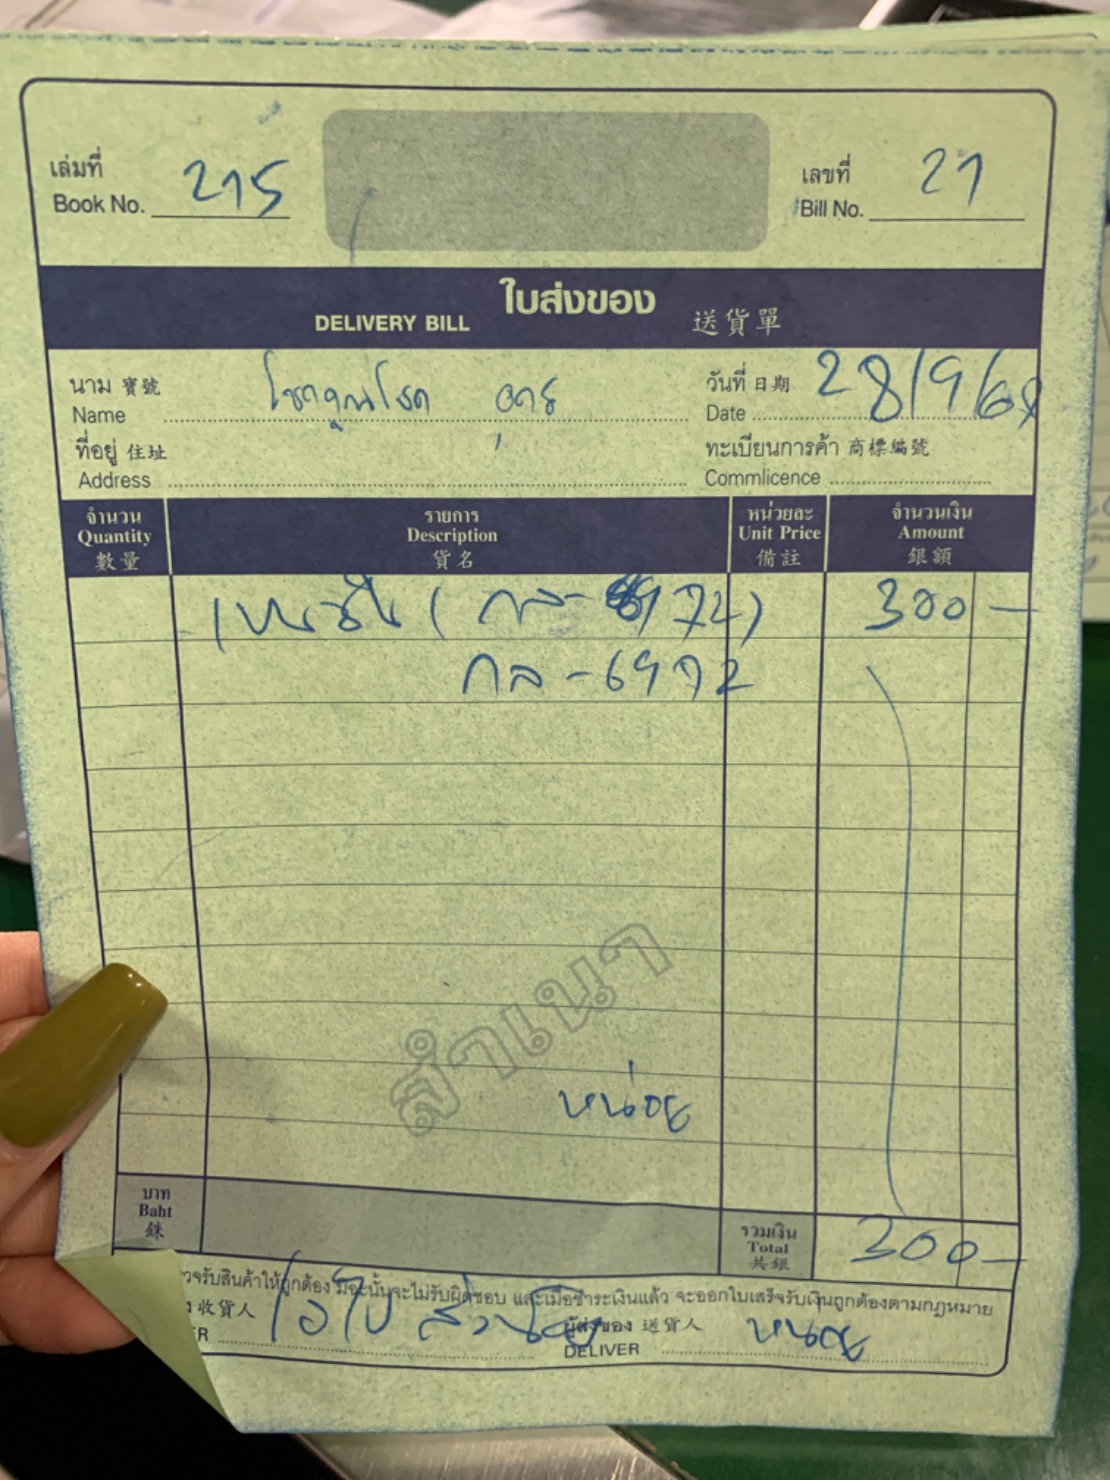 เล่มที่
Book No. 215
เลขที่
Bill No. 27
ใบส่งของ
DELIVERY BILL 送貨單
นาม 寶號
Name
วันที่ 日期
Date 28/9/68
ที่อยู่ 住址
Address
ทะเบียนการค้า 商標編號
Commlicence
จำนวน
Quantity
數量
รายการ
Description
貨名
หน่วยละ
Unit Price
備註
จำนวนเงิน
Amount
銀額
300 -
กล - 6972
สำเนา
หน่อย
บาท
Baht
銖
รวมเงิน
Total
共銀
300 -
วจรับสินค้าให้ถูกต้อง มิฉะนั้นจะไม่รับผิดชอบ และเมื่อชำระเงินแล้ว จะออกใบเสร็จรับเงินถูกต้องตามกฎหมาย
收貨人
ผู้ส่งของ 送貨人
หน่อย
DELIVER